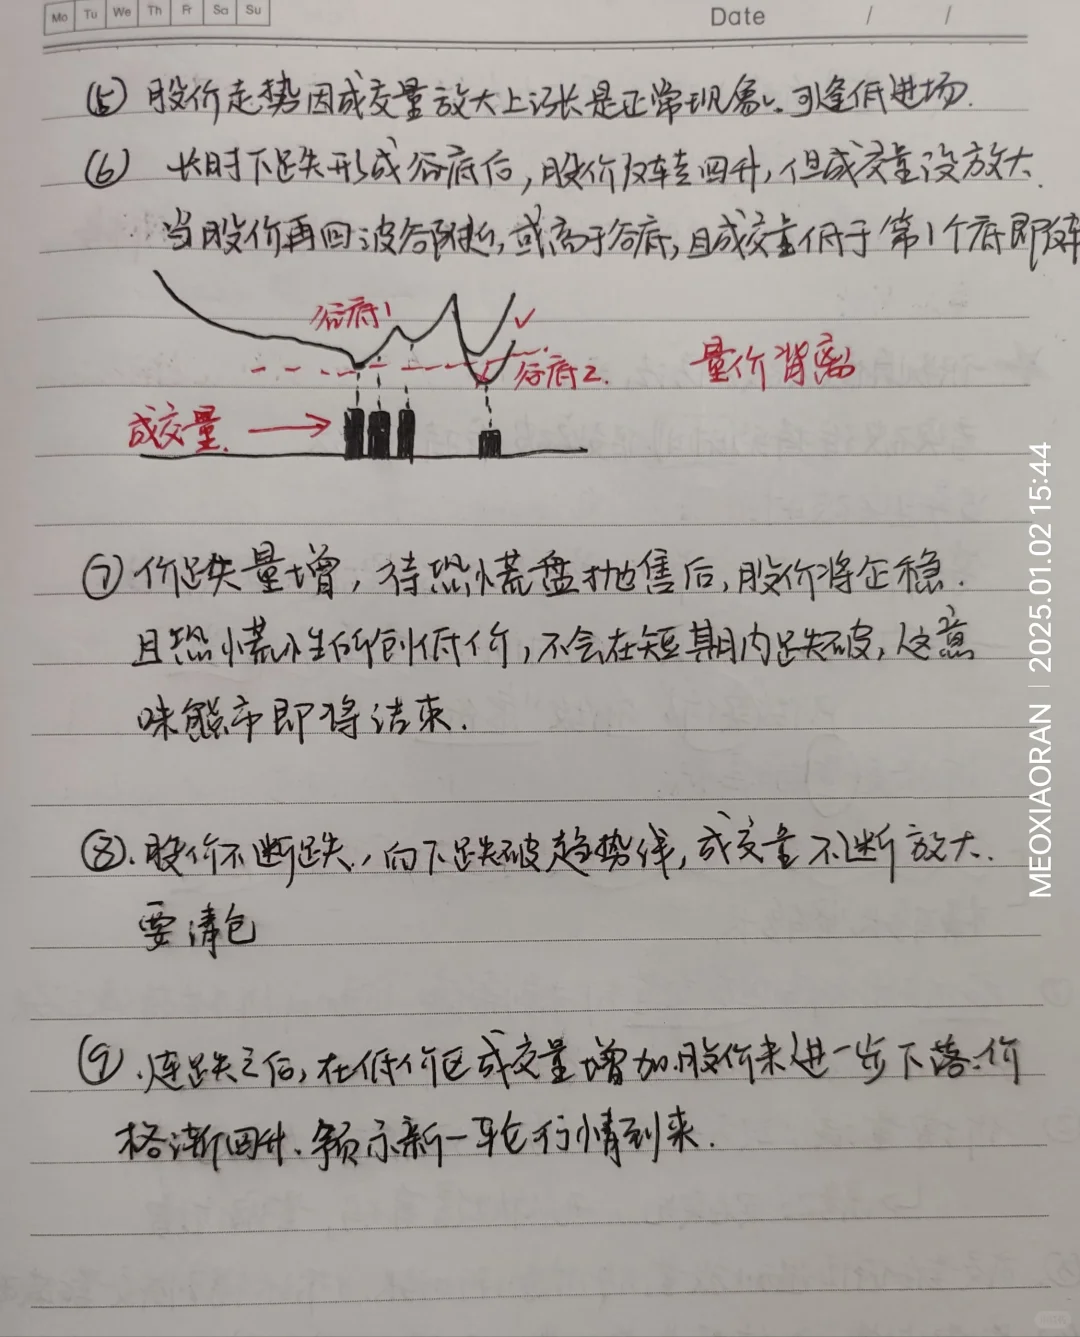 Mo Tu We Th Fr Sa Su
Date / /
(5) 股价走势因成交量放大上涨是正常现象、可逢低进场.
(6) 长时下跌形成谷底后,股价反转回升,但成交量没放大.
当股价再回波谷附近,或高于谷底,且成交量低于第1个底即反转
谷底1
谷底2.
量价背离
成交量.
⑦ 价跌量增,待恐慌盘抛售后,股价将企稳.
且恐慌性所创低价,不会在短期内跌破,这意
味熊市即将结束.
⑧.股价不断跌,向下跌破趋势线,成交量不断放大.
要清仓
⑨.连跌之后,在低价区成交量增加.股价未进一步下落.价
格渐回升、预示新一轮行情到来.
MEOXIAORAN | 2025.01.02 15:44